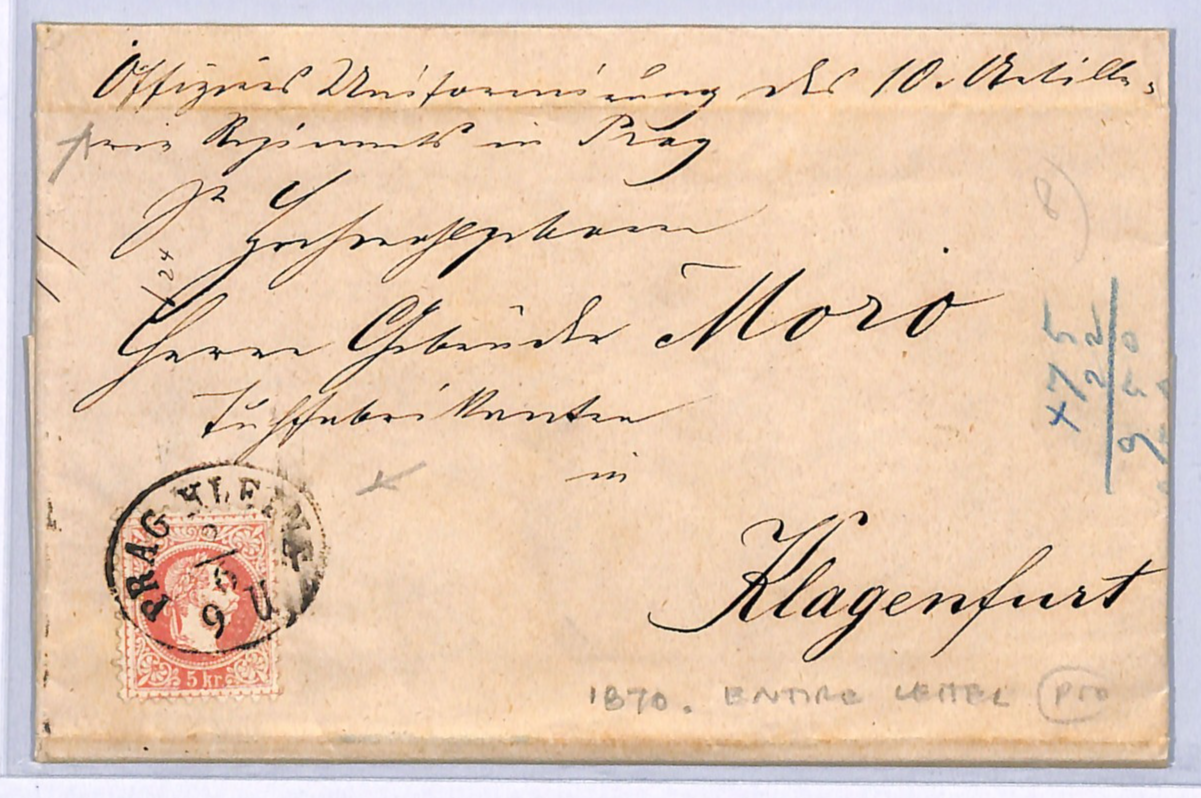 Offiziers Uniformirung des 10. Artille=
rie Regiments in Prag
Sr Hochwohlgeboren
Herren Gebrüder Moro
Tuchfabrikanten
in
Klagenfurt
24
PRAG KLEINS
9 U
5 kr.
475
22
950
1870. ENTIRE LETTER PTO